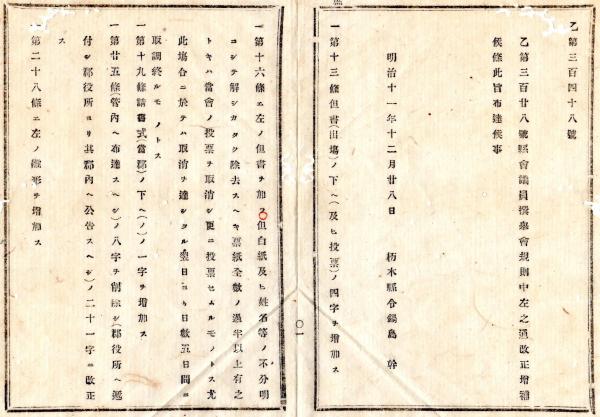 乙第三百四十八號
乙第三百廿八號縣會議員撰擧會規則中左之通改正增補
候條此旨布達候事
明治十一年十二月廿八日　栃木縣令鍋島　幹
一第十三條但書(出塲)ノ下ヘ(及ヒ投票)ノ四字ヲ增加ス
〇一
一第十六條エ左ノ但書ヲ加ス〇但白紙及ヒ姓名等ノ不分明
コシテ解シカタク除去スヘキ票紙全數ノ過半以上有之
トキハ當會ノ投票ヲ取消シ更ニ投票セムルモノトス尤
此塲合ニ於テハ取消ヲ達シタル翌日ヨリ日數五日間ニ
取調終ルモノトス
一第十九條請書式(當郡)ノ下ヘ(ノ)ノ一字ヲ增加ス
一第廿五條(管內ヘ布達スヘシ)ノ八字ヲ削除シ(郡役所ヘ送
付シ郡役所ヨリ其郡內ヘ公告スヘシ)ノ二十一字ニ改正
ス
一第二十八條エ左ノ雛形ヲ增加ス